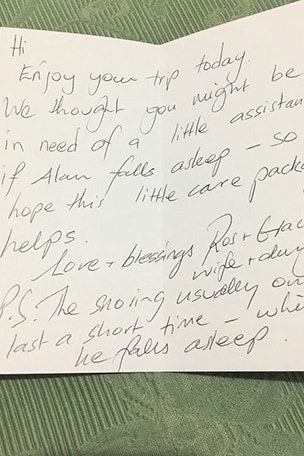 Hi
Enjoy your trip today.
We thought you might be
in need of a little
if Alan falls asleep - so
hope this little care
helps.
Love + blessings Ros +
wife +
P.S. The snoring usually
last a short time -
he falls asleep.